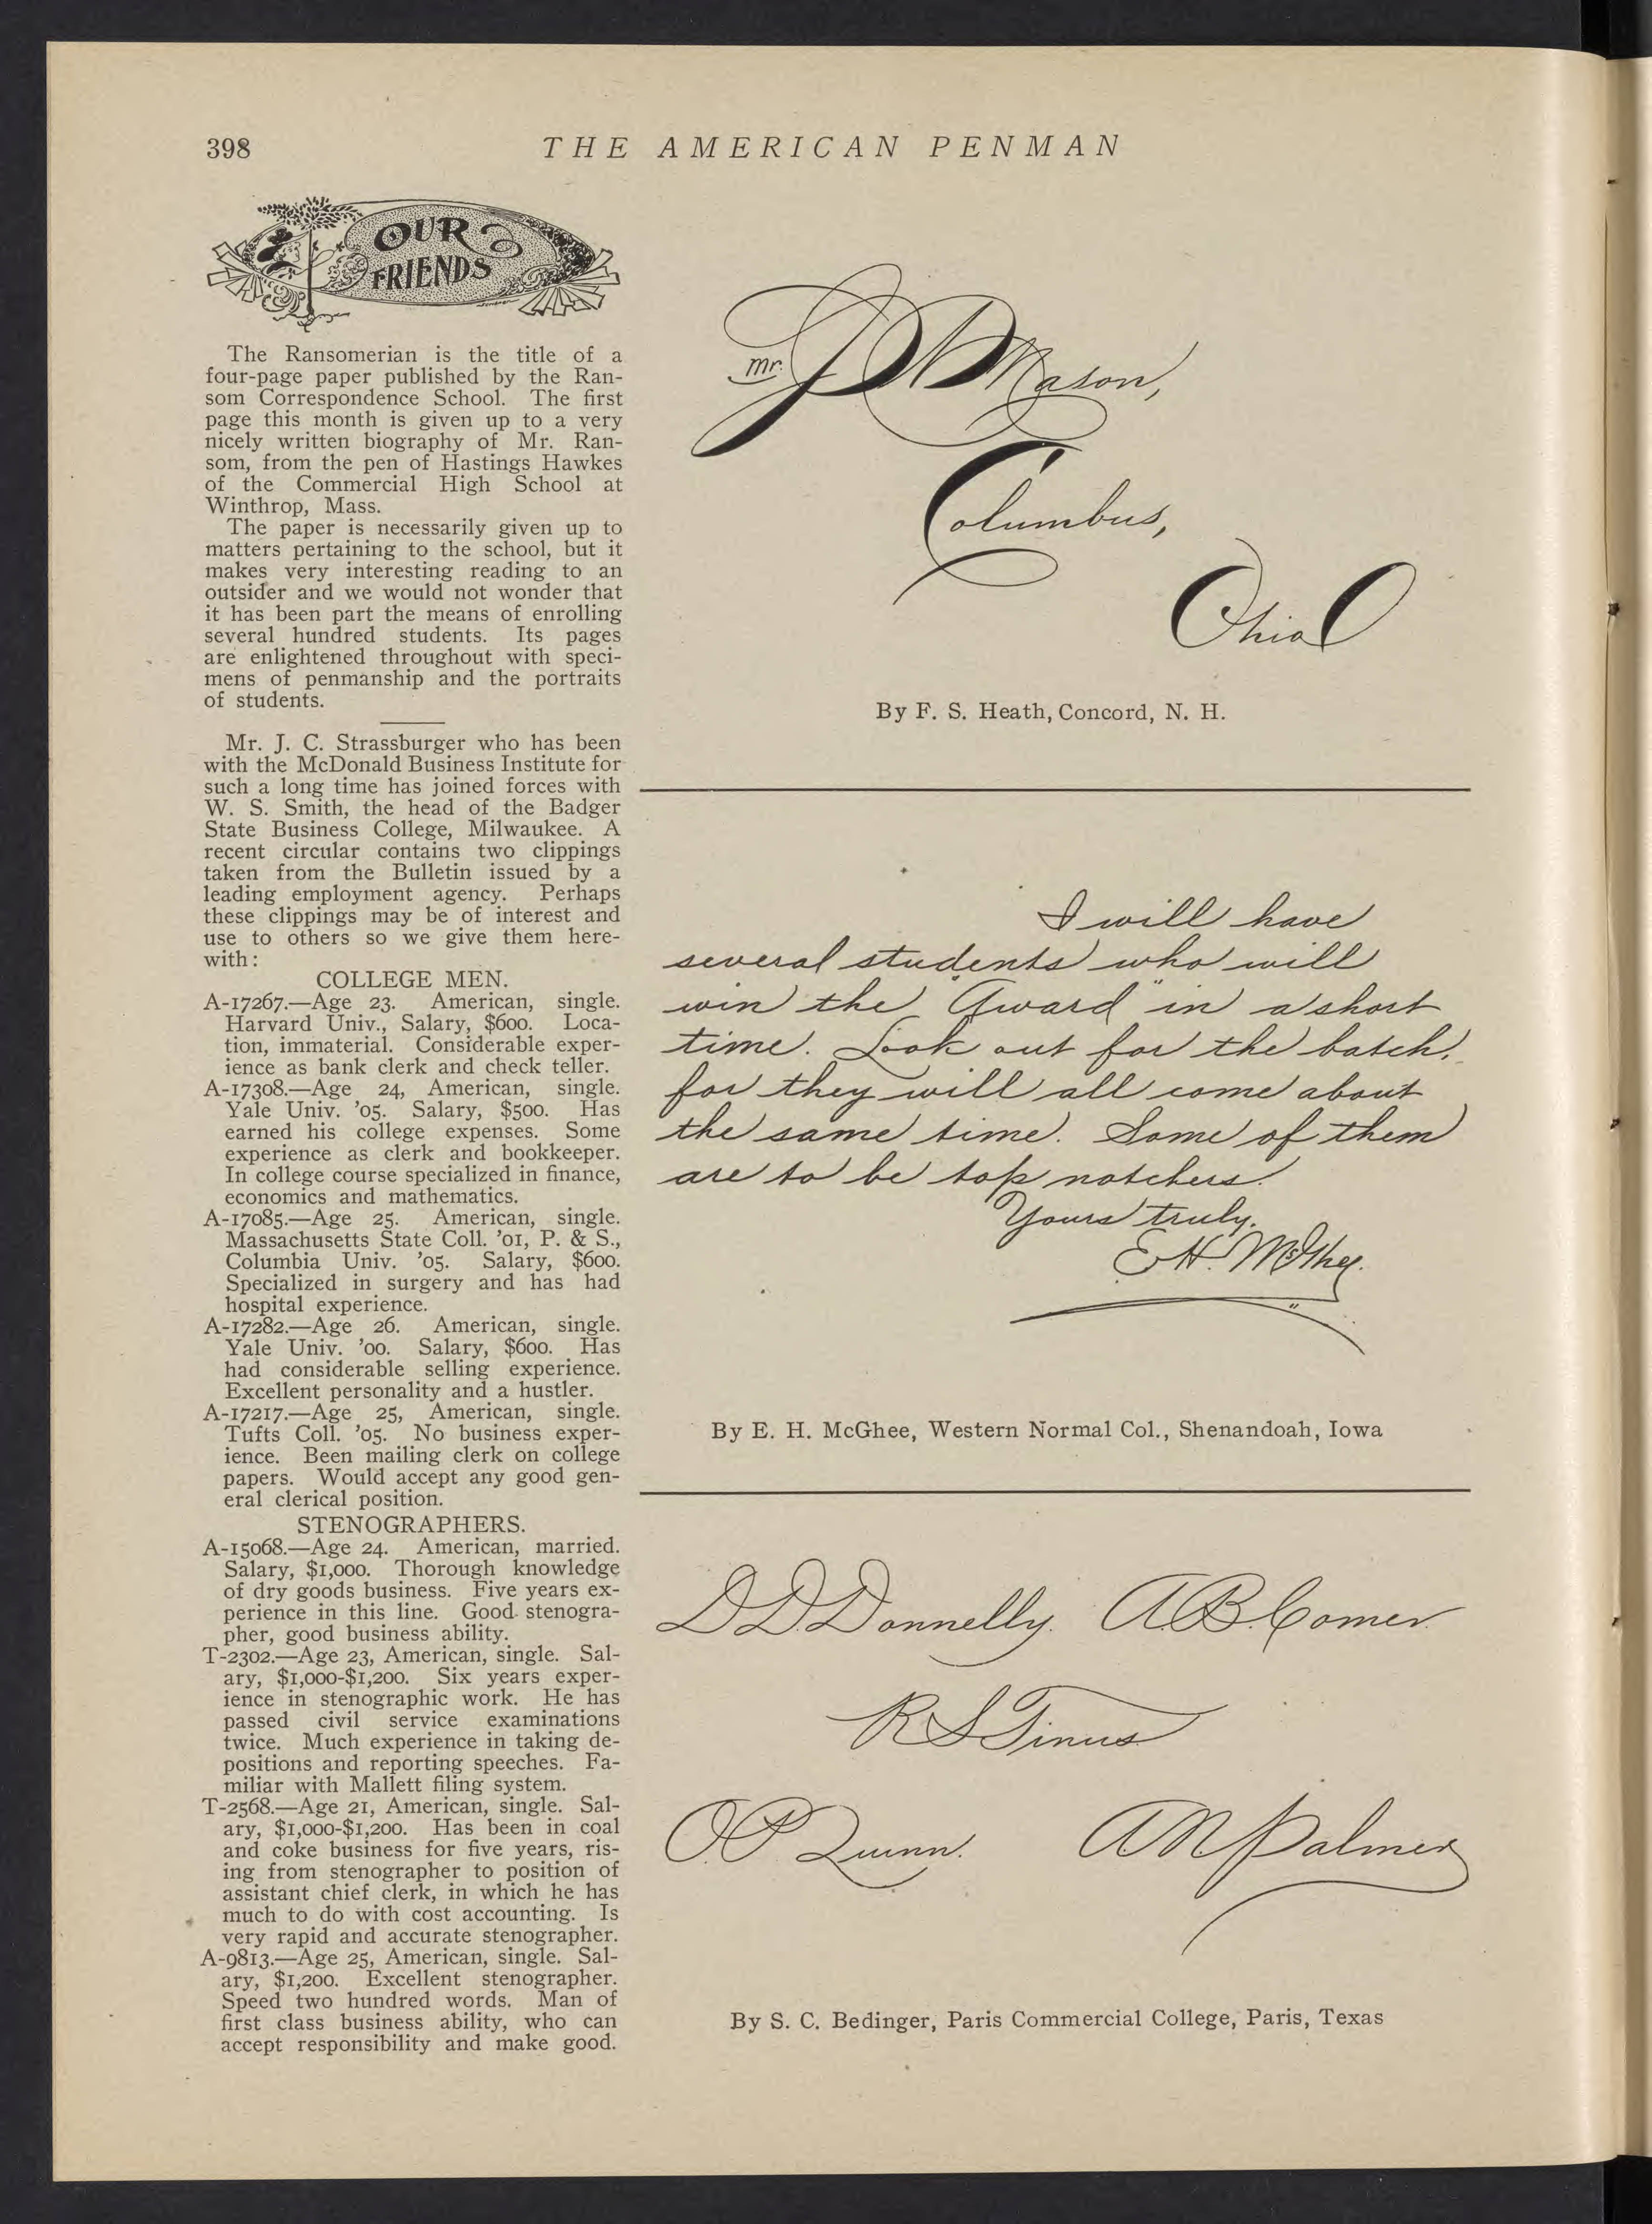 398
THE AMERICAN PENMAN
OUR
FRIENDS
The Ransomerian is the title of a
four-page paper published by the Ran-
som Correspondence School. The first
page this month is given up to a very
nicely written biography of Mr. Ran-
som, from the pen of Hastings Hawkes
of the Commercial High School at
Winthrop, Mass.
The paper is necessarily given up to
matters pertaining to the school, but it
makes very interesting reading to an
outsider and we would not wonder that
it has been part the means of enrolling
several hundred students. Its pages
are enlightened throughout with speci-
mens of penmanship and the portraits
of students.
Mr. J. C. Strassburger who has been
with the McDonald Business Institute for
such a long time has joined forces with
W. S. Smith, the head of the Badger
State Business College, Milwaukee. A
recent circular contains two clippings
taken from the Bulletin issued by a
leading employment agency. Perhaps
these clippings may be of interest and
use to others so we give them here-
with:
COLLEGE MEN.
A-17267.—Age 23. American, single.
Harvard Univ., Salary, $600. Loca-
tion, immaterial. Considerable exper-
ience as bank clerk and check teller.
A-17308.—Age 24, American, single.
Yale Univ. '05. Salary, $500. Has
earned his college expenses. Some
experience as clerk and bookkeeper.
In college course specialized in finance,
economics and mathematics.
A-17085.—Age 25. American, single.
Massachusetts State Coll. '01, P. & S.,
Columbia Univ. '05. Salary, $600.
Specialized in surgery and has had
hospital experience.
A-17282.—Age 26. American, single.
Yale Univ. '00. Salary, $600. Has
had considerable selling experience.
Excellent personality and a hustler.
A-17217.—Age 25, American, single.
Tufts Coll. '05. No business exper-
ience. Been mailing clerk on college
papers. Would accept any good gen-
eral clerical position.
STENOGRAPHERS.
A-15068.—Age 24. American, married.
Salary, $1,000. Thorough knowledge
of dry goods business. Five years ex-
perience in this line. Good stenogra-
pher, good business ability.
T-2302.—Age 23, American, single. Sal-
ary, $1,000-$1,200. Six years exper-
ience in stenographic work. He has
passed civil service examinations
twice. Much experience in taking de-
positions and reporting speeches. Fa-
miliar with Mallett filing system.
T-2568.—Age 21, American, single. Sal-
ary, $1,000-$1,200. Has been in coal
and coke business for five years, ris-
ing from stenographer to position of
assistant chief clerk, in which he has
much to do with cost accounting. Is
very rapid and accurate stenographer.
A-9813.—Age 25, American, single. Sal-
ary, $1,200. Excellent stenographer.
Speed two hundred words. Man of
first class business ability, who can
accept responsibility and make good.
Mr. Mason,
Columbus,
Ohio
By F. S. Heath, Concord, N. H.
I will have
several students who will
win the "Award" in a short
time. Look out for the batch,
for they will all come about
the same time. Some of them
are to be top notchers.
Yours truly,
E H. McGhee.
By E. H. McGhee, Western Normal Col., Shenandoah, Iowa
D D. Donnelly. A B. Comer
R S Tinus
O. P. Quinn. A N Palmer
By S. C. Bedinger, Paris Commercial College, Paris, Texas